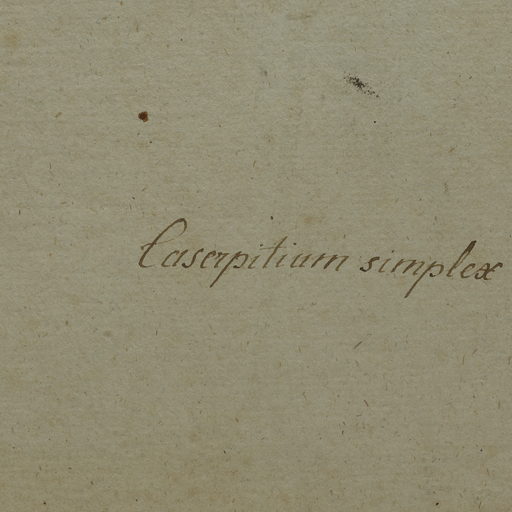 Laserpitium simplex